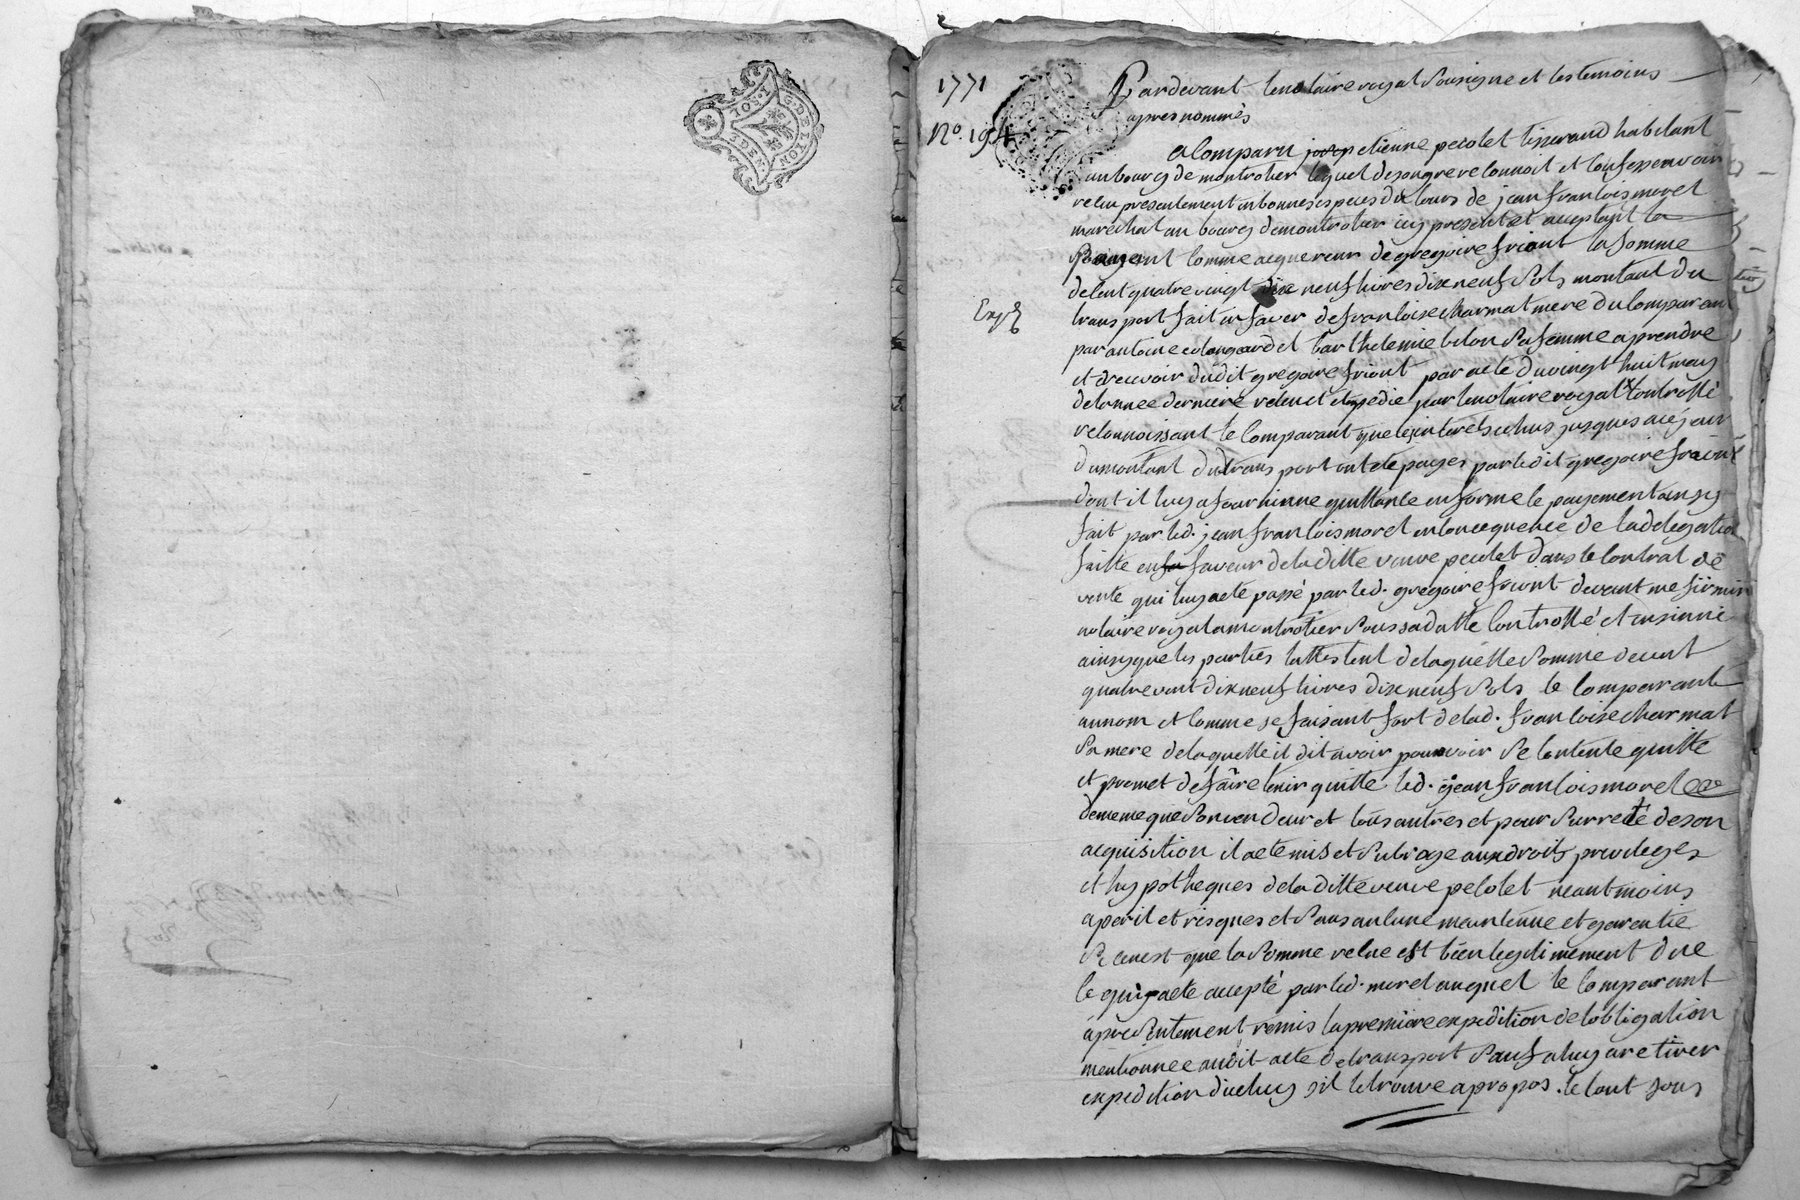 G. DE LYON
DEN
1771
No. 194
Expd
Pardevant lenotaire royal Sousigné et lestemoins
apres nommés
a Comparu etienne pecolet tisserand habitant
aubourg de montrotier lequel desongre reconnoit et Confesse avoir
receu presentement enbonnes especes du Cours de jean francois morel
marechal au bourg demontrotier icy present et acceptant la
Payant Comme acquereur de gregoire friont la Somme
deCent quatre vingt dix neuf livres dix neuf Sols montant du
transport fait en faver de francoise charmat mere du Comparant
par antoine et barthelemie belon Sa femme a prendre
et arecevoir dudit gregoire friont par acte du vingt huit may
delannee derniere receu et expedie par lenotaire royal x Controllé
reconnoissant le Comparant que les interets echus jusques a cejour
dumontant dutransport ont ete payes par ledit gregoire friont
dont il luy a fournienne quittance en forme le payement ainsy
fait par led. jean francois morel en Concequence de la delegation
faitte en faveur de laditte veuve pecolet dans le Contrat de
vente qui luy aete passé par led. gregoire friont devant me
notaire royal a montrotier Sous sa datte Controllé et insinué
ainsy que les parties lattestent de laquelle Somme de cent
quatrevent dix neuf livres dix neuf Sols le Comparant
aunom et Comme se faisant fort de lad. francoise charmat
Sa mere de laquelle il dit avoir pouvoir Se Contente quitte
et promet de faire tenir quitte led. jean francois morel
de meme que Son vendeur et tous autres et pour Surreté de son
acquisition il a ete mis et Subrogé aux droits privileges
et hypotheques de la ditte veuve pecolet neantmoins
a peril et risques et Sans aucune maintenue et garentie
Si cenest que la Somme recue est bien legitimement due
le qui acte accepté par led. morel auquel le Comparant
a presentement remis la premiere expedition de lobligation
mentionnee audit acte de transport Sauf a luy a retirer
expedition diceluy sil le trouve a propos. le tout sous